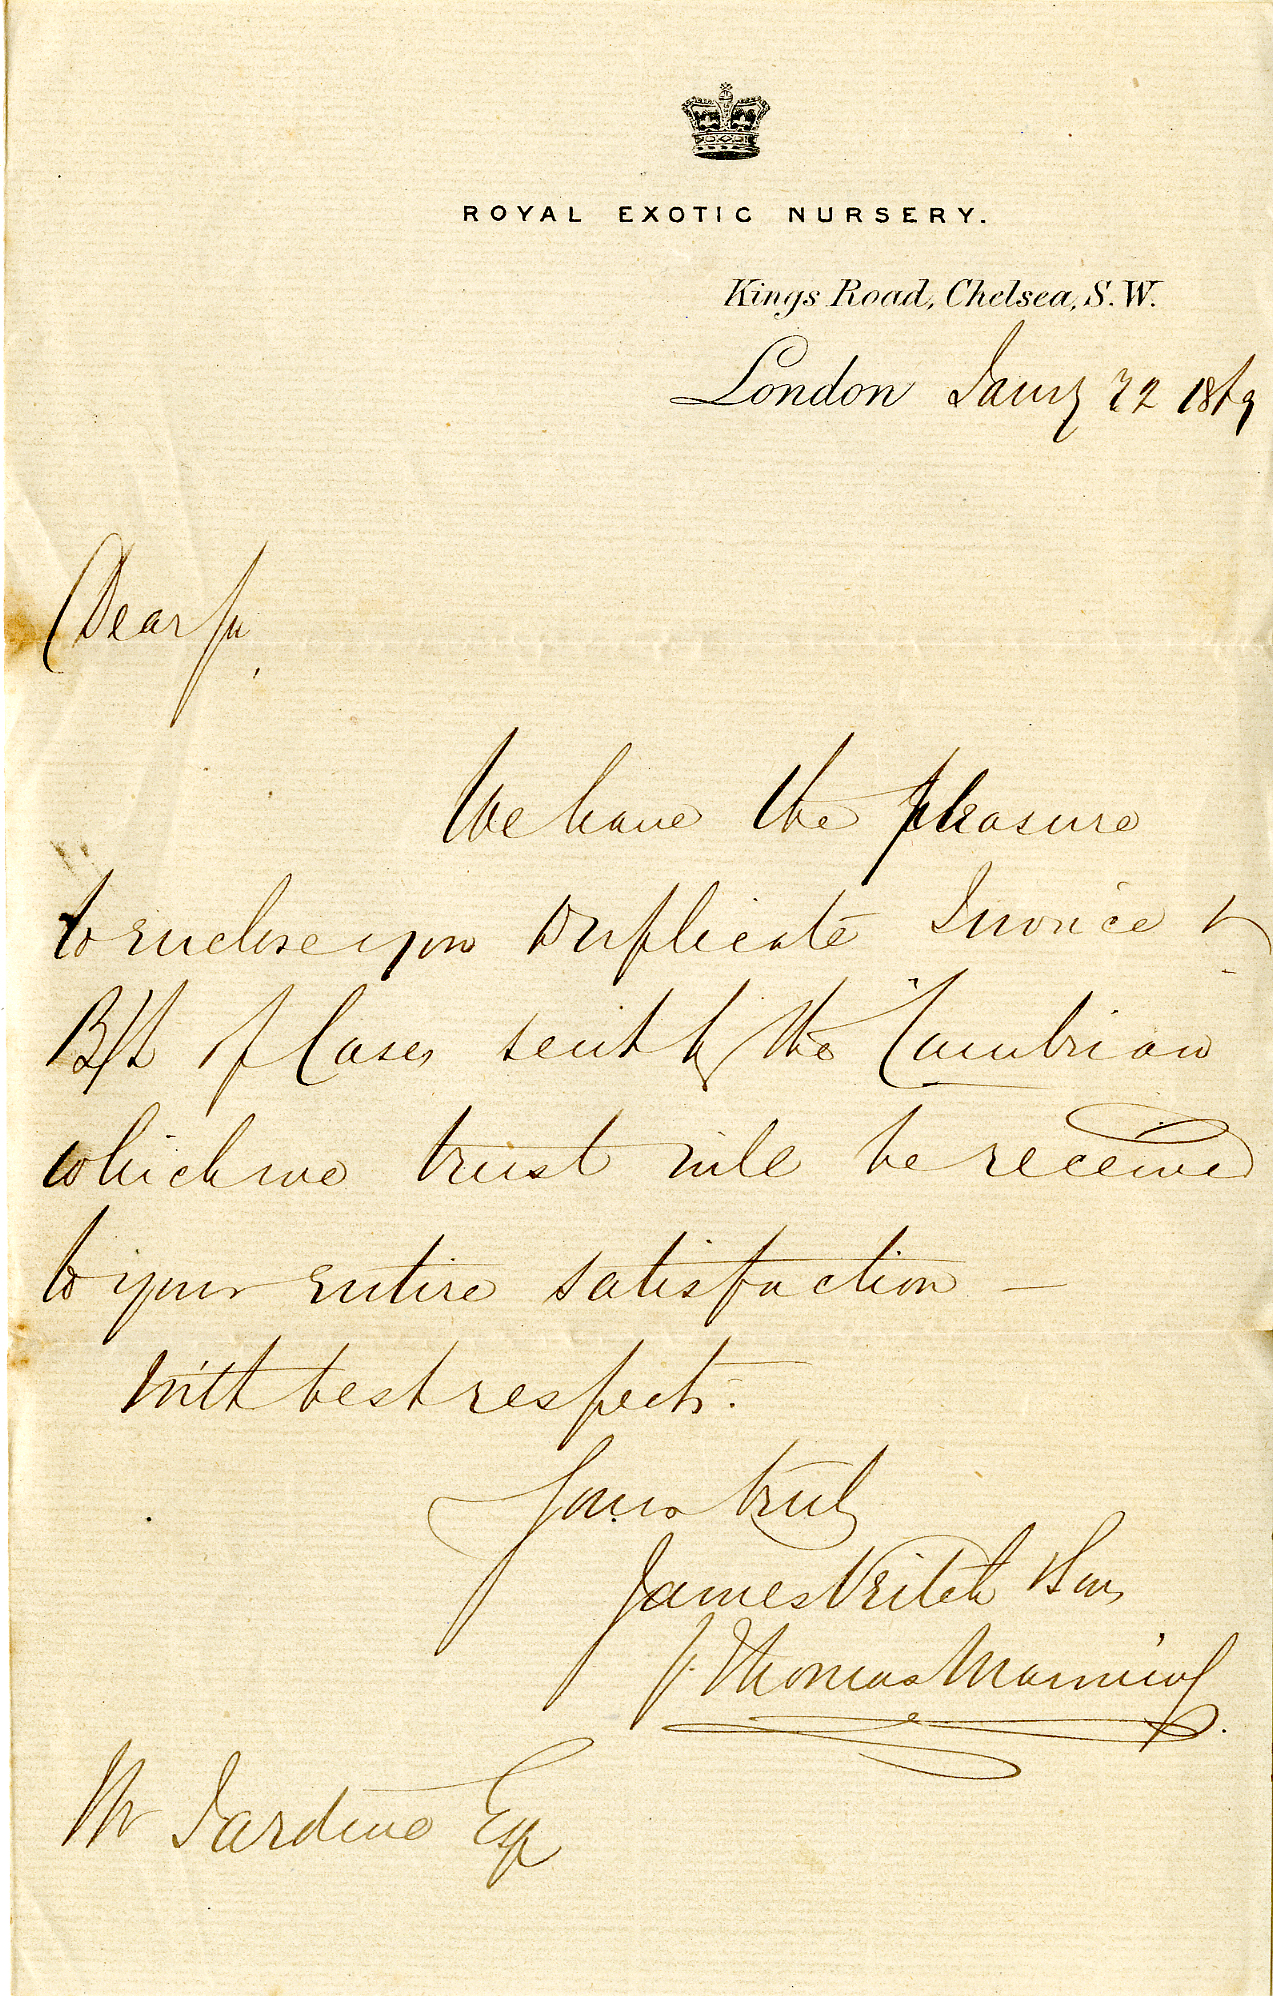 ROYAL EXOTIC NURSERY.
Kings Road, Chelsea, S.W.
London Jany 22 1869
Dear Sir,
We have the pleasure
to enclose you Duplicate Invoice &
B/L of Cases sent by the "Cambrian
which we trust will be received
to your entire satisfaction —
With best respects.
Yours truly
James Veitch & Sons
p. Thomas Manning.
Wm Jardine Esq